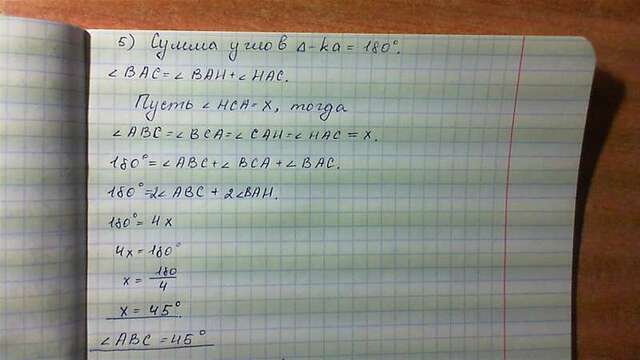 5) Сумма углов Δ-ka = 180°.
∠BAC=∠BAH+∠HAC.
Пусть ∠HCA=X, тогда
∠ABC=∠BCA=∠CAH=∠HAC=x.
180°=∠ABC+∠BCA+∠BAC.
180°=2∠ABC+2∠BAH.
180°=4x
4x=180°
x=180/4
x=45°
∠ABC=45°